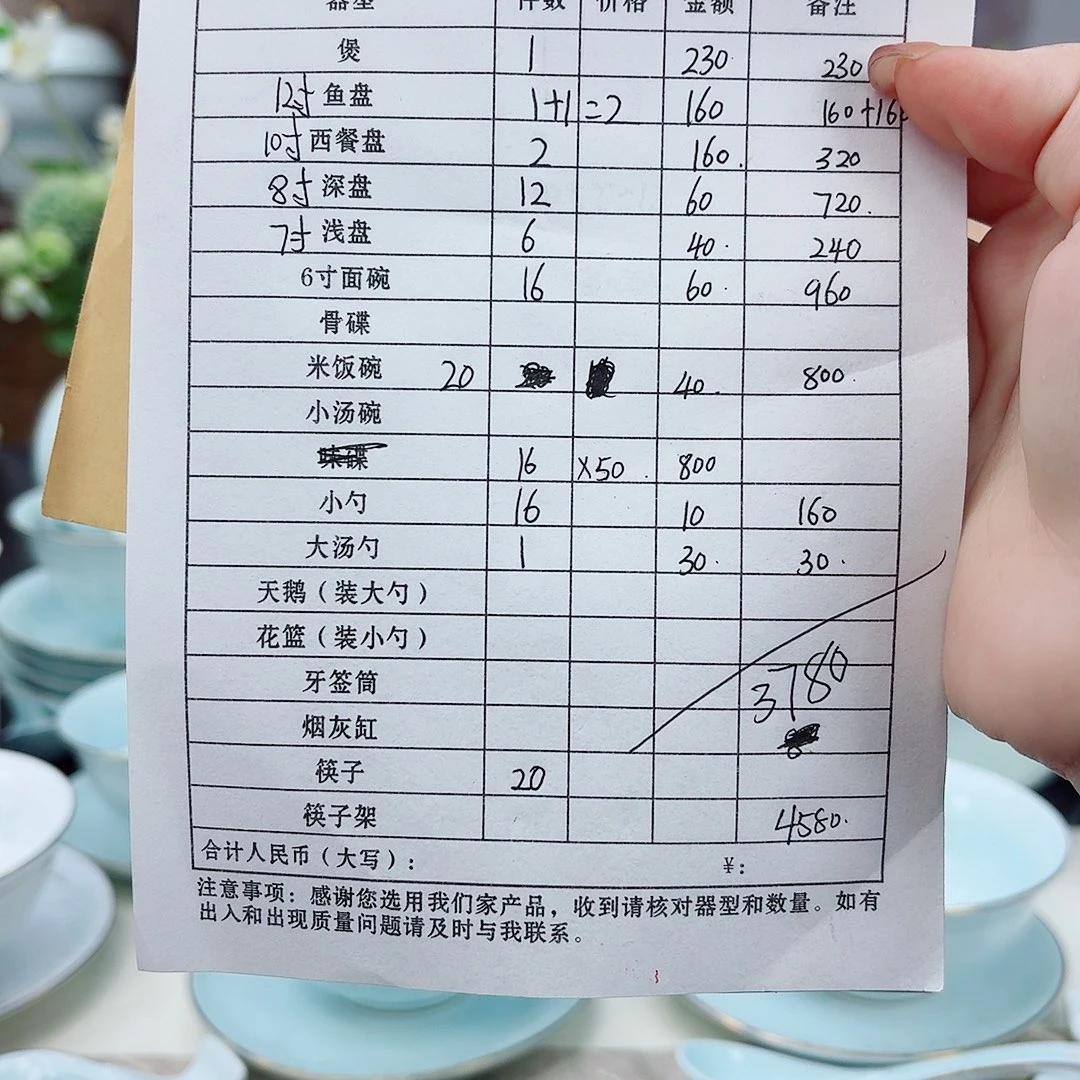 器型 件数 价格 金额 备注
煲 1 230 230
12寸 鱼盘 1+1 =2 160 160+160
10寸 西餐盘 2 160. 320
8寸 深盘 12 60 720.
7寸 浅盘 6 40. 240
6寸面碗 16 60. 960
骨碟
米饭碗 20 40. 800.
小汤碗
味碟 16 ×50 800
小勺 16 10 160
大汤勺 1 30. 30.
天鹅（装大勺）
花篮（装小勺）
牙签筒 3780
烟灰缸
筷子 20
筷子架 4580.
合计人民币（大写）： ¥：
注意事项：感谢您选用我们家产品，收到请核对器型和数量。如有
出入和出现质量问题请及时与我联系。